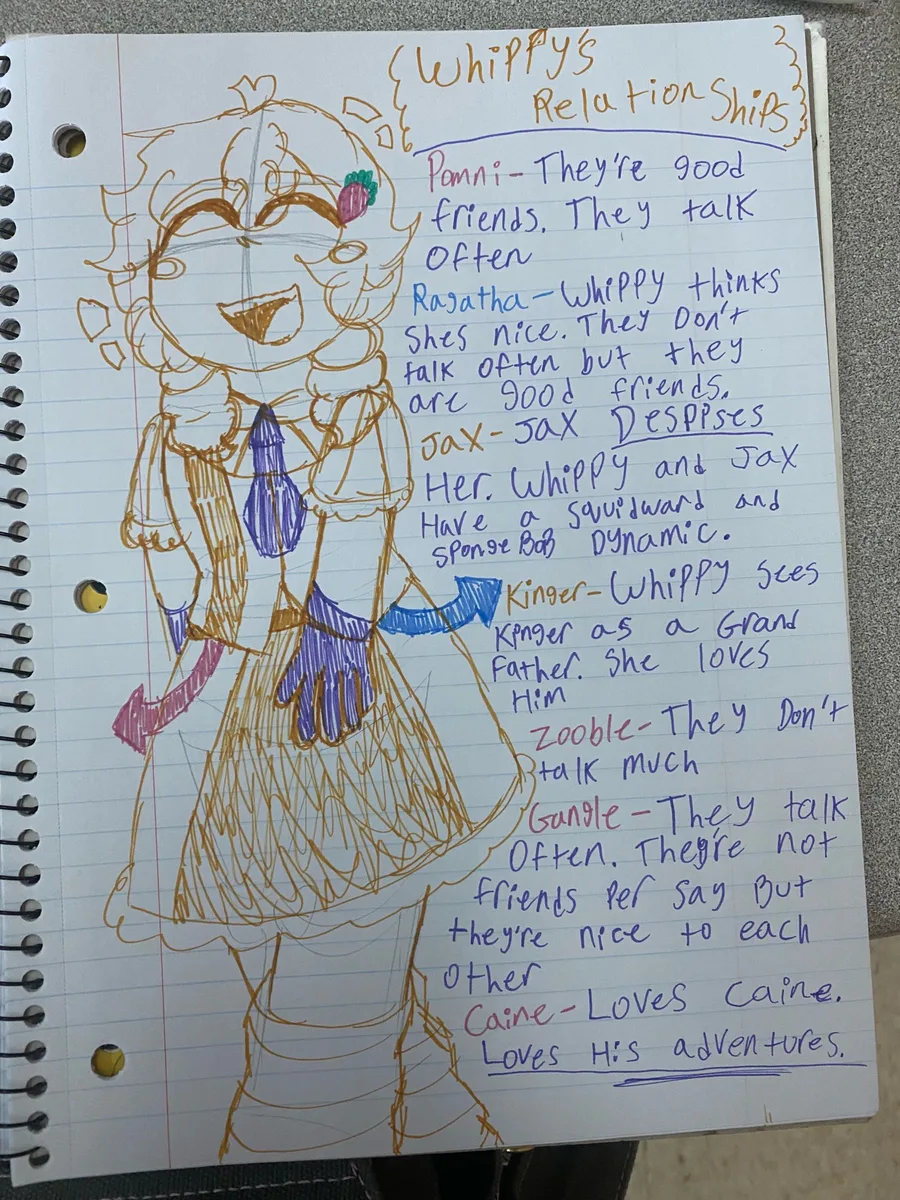 Whippy's
Relationships
Pomni- They're good
friends. They talk
often
Ragatha- Whippy thinks
Shes nice. They Don't
talk often but they
are good friends.
Jax- Jax Despises
Her. Whippy and Jax
Have a Squidward and
SpongeBob Dynamic.
Kinger- Whippy sees
Kinger as a Grand
Father. She loves
Him
Zooble- They Don't
talk much
Gangle- They talk
Often. They're not
friends Per say But
they're nice to each
Other
Caine- Loves Caine.
Loves His adventures.